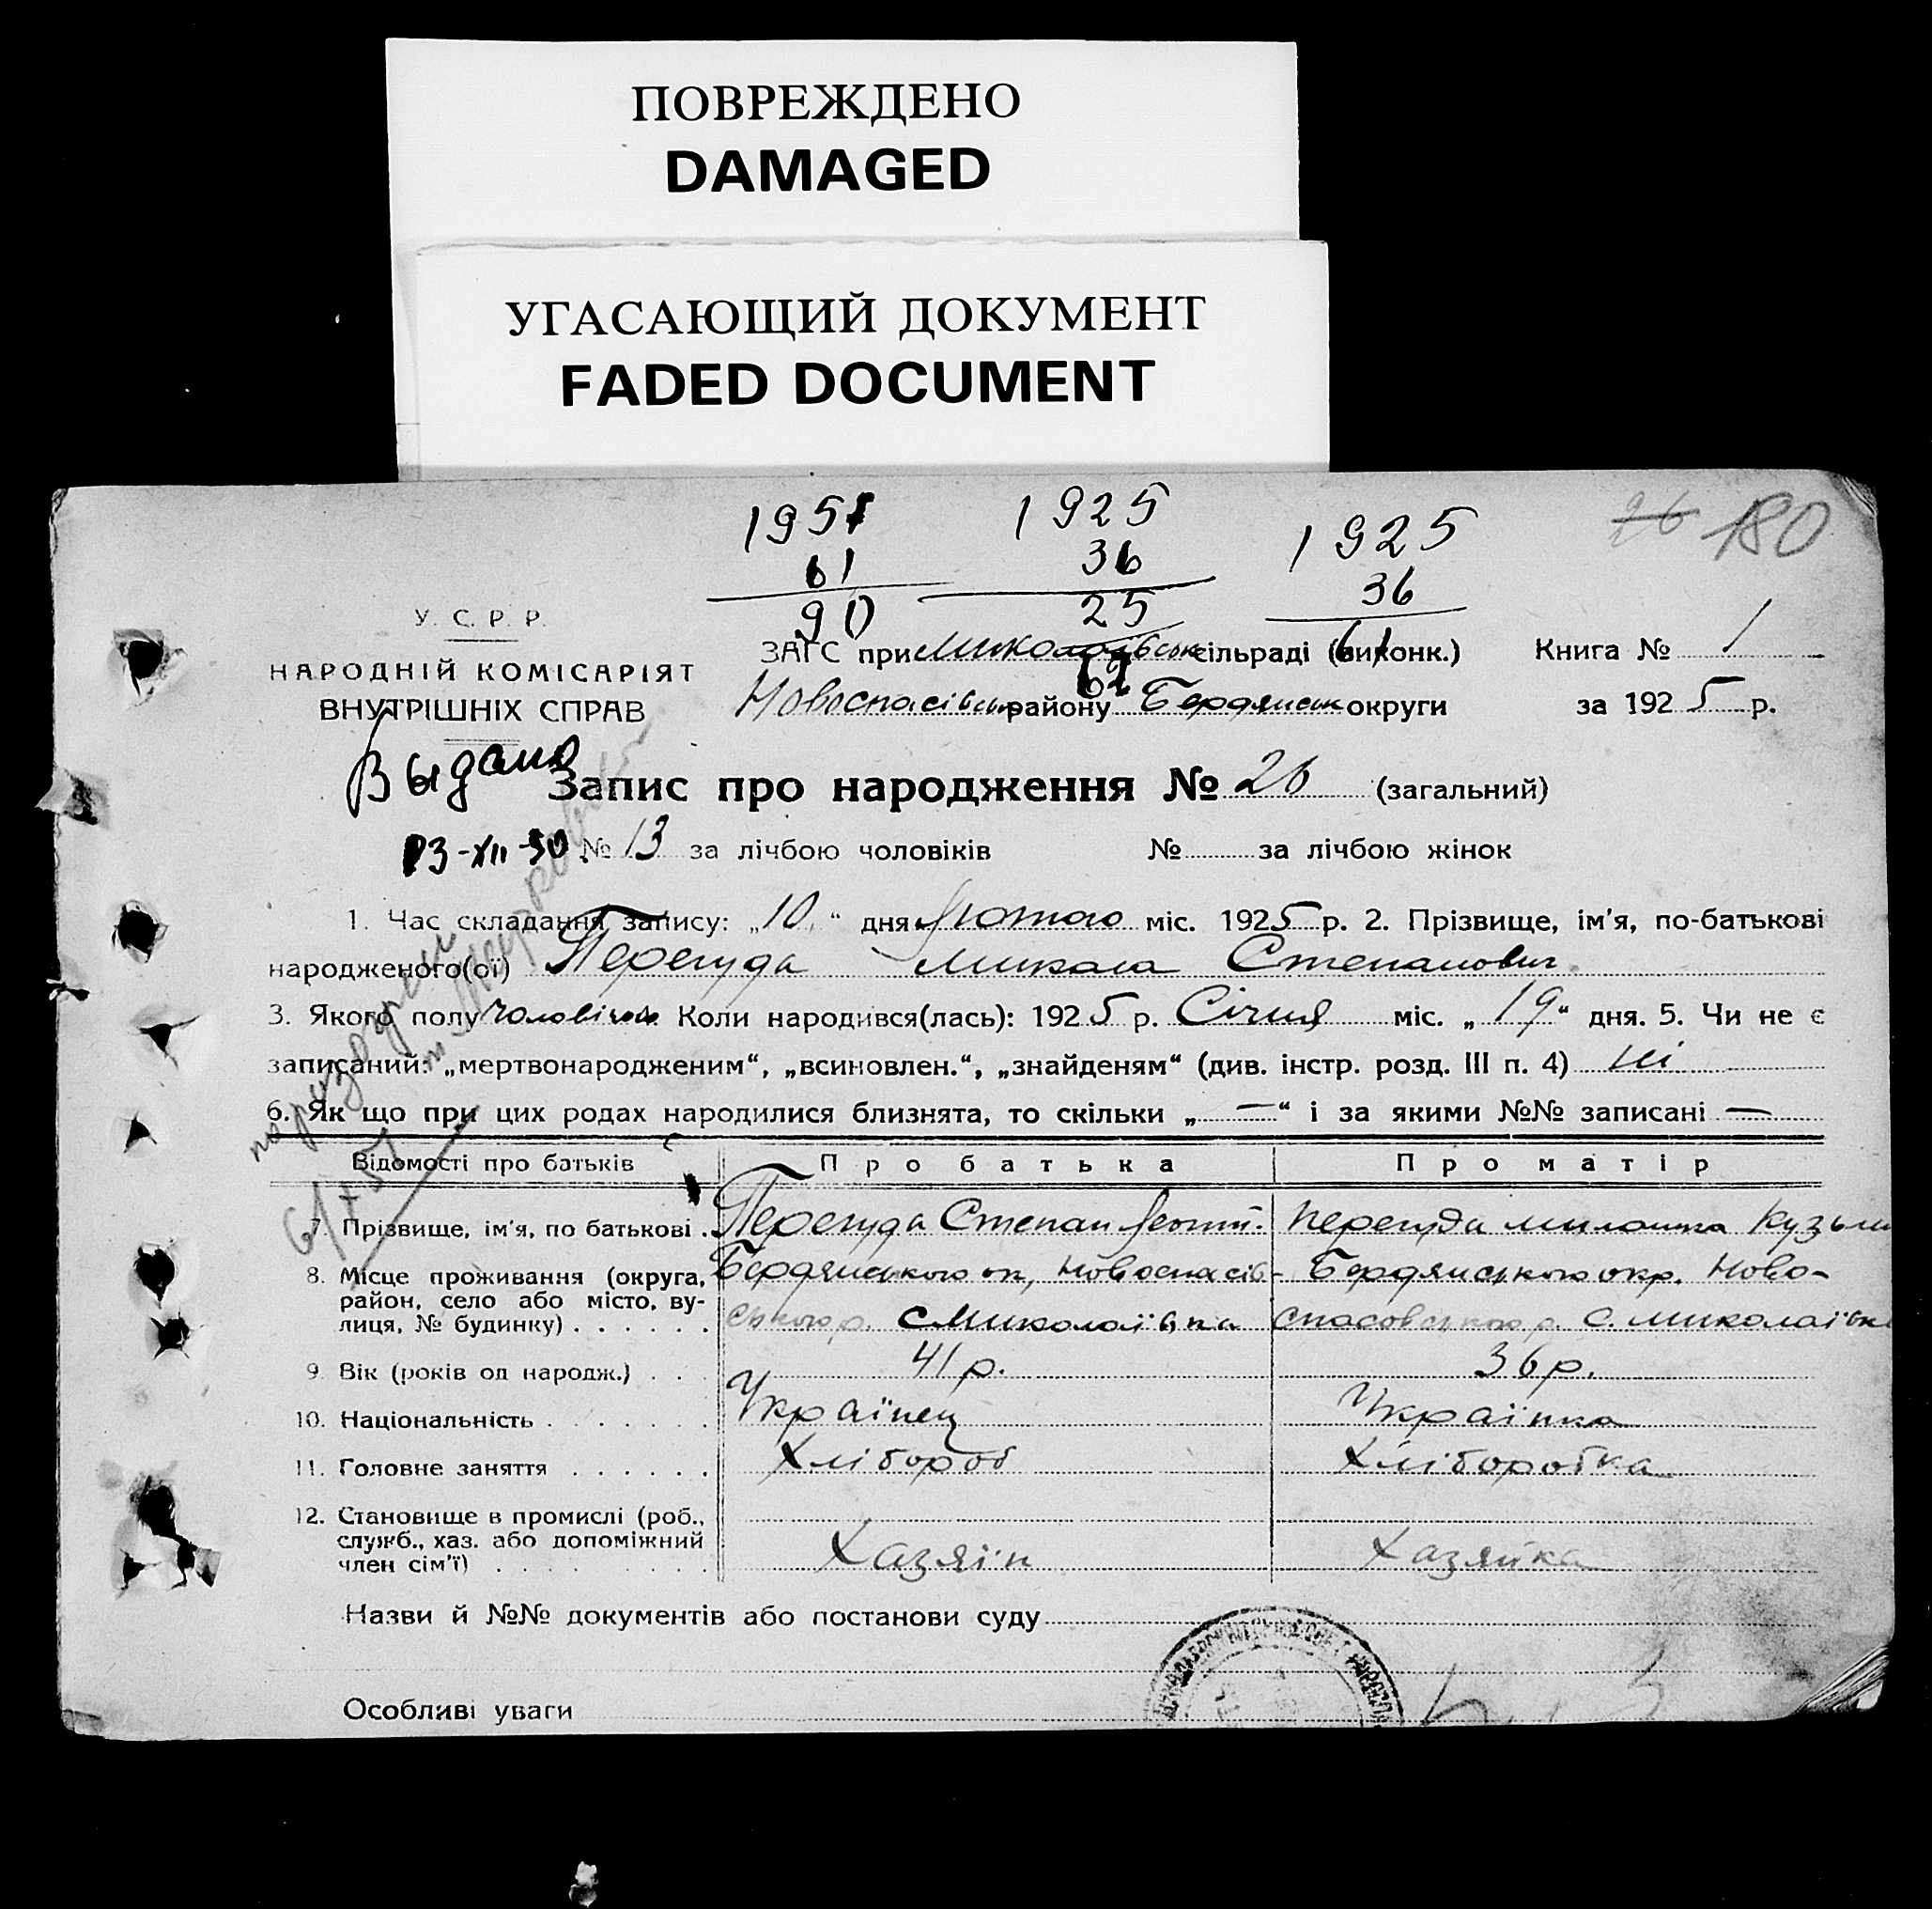 ПОВРЕЖДЕНО
DAMAGED
УГАСАЮЩИЙ ДОКУМЕНТ
FADED DOCUMENT
1951 1925 1925 26 180
61 36 36
90 25 61
62
У. С. Р. Р.
НАРОДНІЙ КОМІСАРІЯТ
ВНУТРІШНІХ СПРАВ
ЗАГС при Миколаївськ сільраді (виконк.) Книга № 1
Новоспасівськ району Бердянськ округи за 1925 р.
Выдано
Запис про народження № 26 (загальний)
-XII-50 № 13 за лічбою чоловіків № за лічбою жінок
1. Час складання запису: „10“ дня Лютого міс. 1925 р. 2. Прізвище, ім'я, по-батькові
народженого(ої) Перегуда Микола Степанович
3. Якого полу Чоловічого Коли народився(лась): 1925 р. Січня міс. „19“ дня. 5. Чи не є
записаний: „мертвонародженим“, „всиновлен.“, „знайденям“ (див. інстр. розд. III п. 4) ні
6. Як що при цих родах народилися близнята, то скільки „—“ і за якими №№ записані —
Відомості про батьків Про батька Про матір
7. Прізвище, ім'я, по батькові . Перегуда Степан Перегуда Кузьм
8. Місце проживання (округа, Бердянського ок, Новоспасів- Бердянського окр. Ново-
район, село або місто, ву-
лиця, № будинку) . . . . . . ського р. с Миколаївка спасовського р. с. Миколаївка
9. Вік (років од народж.) . . . 41 р. 36 р.
10. Національність . . . . . . . Українец Українка
11. Головне заняття . . . . . . Хлібороб Хліборобка
12. Становище в промислі (роб.,
служб., хаз. або допоміжний
член сім'ї) . . . . . . . . . Хазяїн Хазяйка
Назви й №№ документів або постанови суду
Особливі уваги